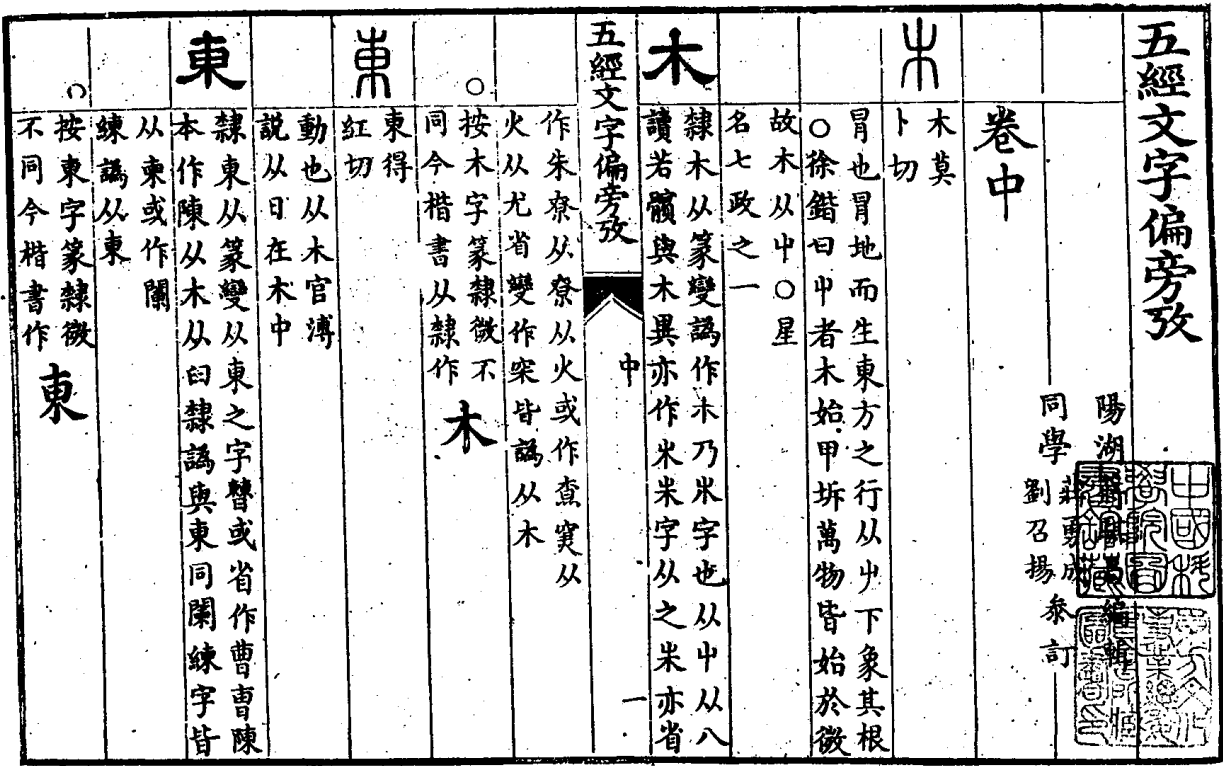 五經文字偏旁攷
陽湖
編輯
同學
莊勇成
劉召揚
叅訂
卷中
木
木莫
卜切
冒也冒地而生東方之行从屮下象其根
○徐鍇曰屮者木始甲坼萬物皆始於微
故木从屮○星
名七政之一
木
隸木从篆變譌作木乃𣎳字也从屮从八
讀若髕與木異亦作米米字从之米亦省
五經文字偏旁攷
中
一
作朱尞从尞从火或作
从
火从尤省變作突皆譌从木
○
按木字篆隸微不
同今楷書从隸作
木
東
東得
紅切
動也从木官溥
説从日在木中
東
隸東从篆變从東之字𣍘或省作曹曺陳
本作陳从木从𦥑隸譌與東同闌練字皆
从柬或作闌
練譌从東
○
按東字篆隸微
不同今楷書作
東